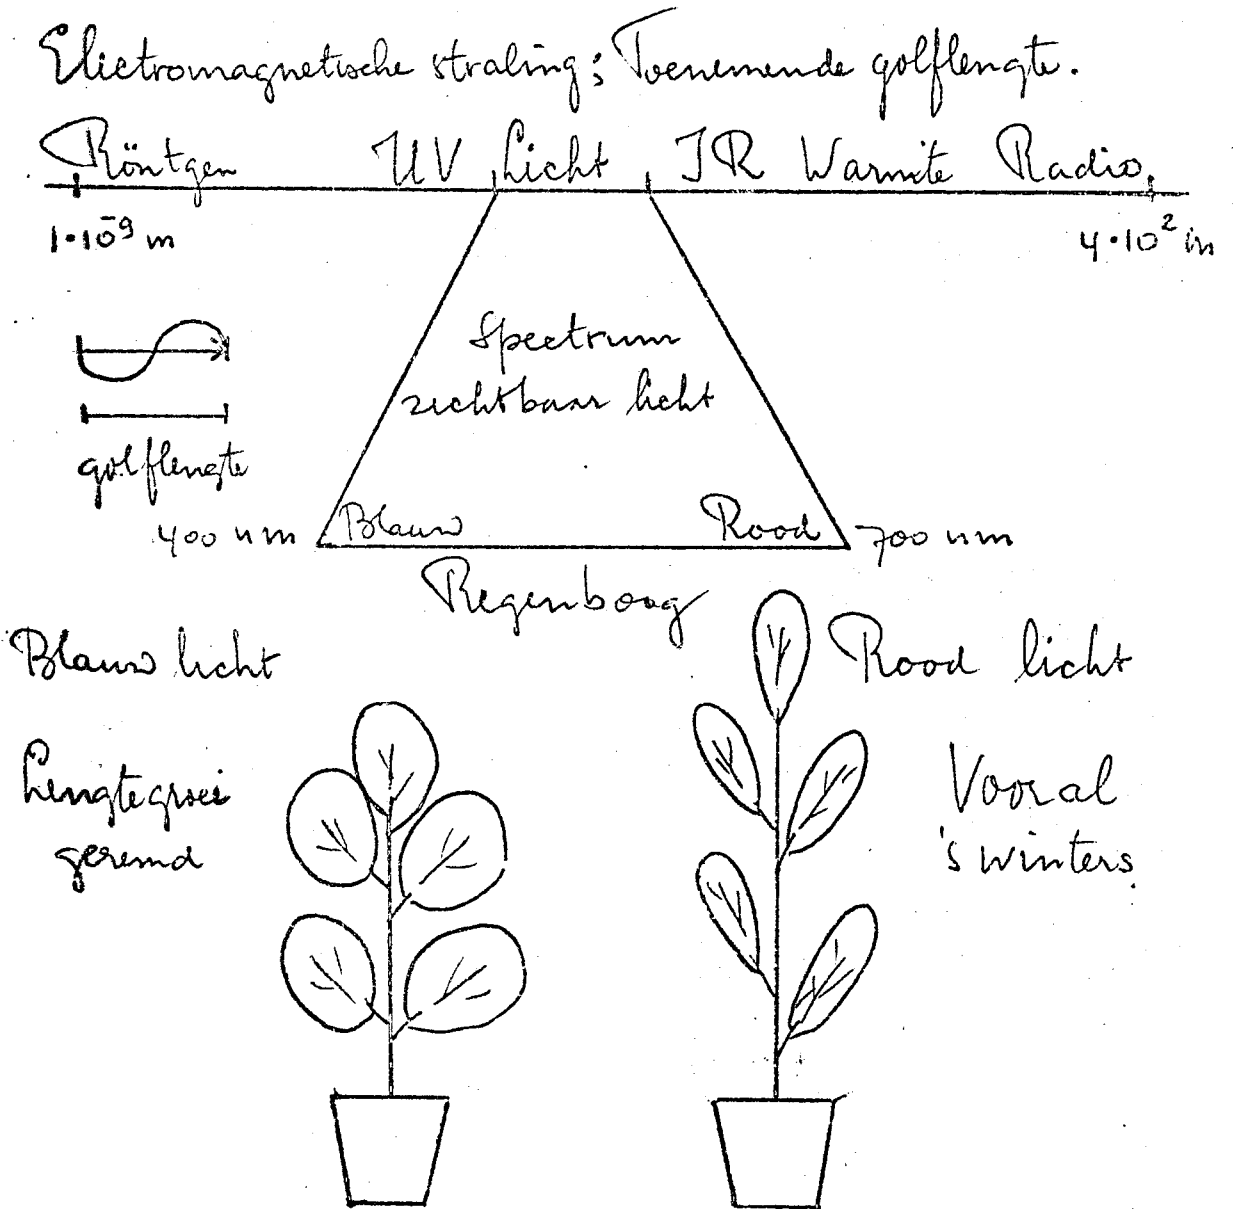 Electromagnetische straling; Toenemende golflengte.
Röntgen UV Licht IR Warmte Radio.
1·10⁻⁹ m 4·10² m
Spectrum
zichtbaar licht
golflengte
400 nm Blauw Rood 700 nm
Regenboog
Blauw licht Rood licht
Lengtegroei Vooral
geremd 's winters.